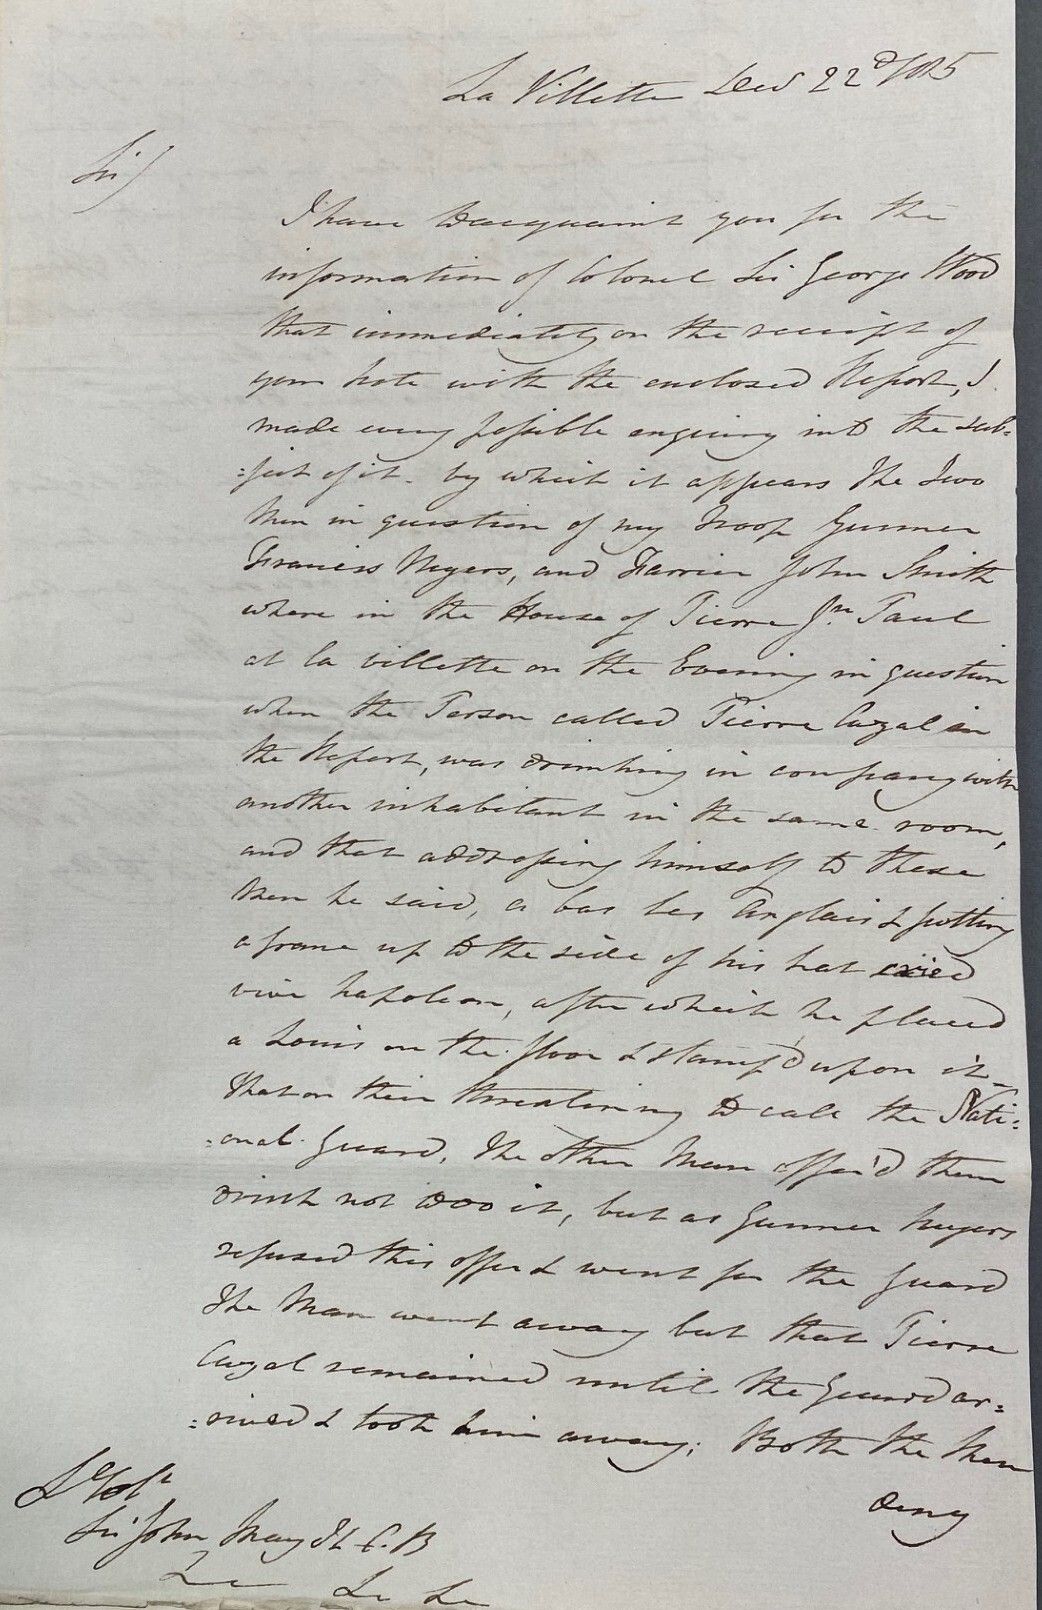 La Villette Decr 22d 1815
Sir/
I have to acquaint you for the
information of Colonel Sir George Wood
that immediately on the receipt of
your note with the enclosed Report, I
made every possible enquiry into the sub=
=ject of it. by which it appears the Two
Men in question of my Troop Gunner
Franciss Meyers, and Farrier John Smith
where in the House of Pierre Jn Paul
at la villette on the Evening in question
when the Person called Pierre in
the Report, was drinking in company with
another inhabitant in the same room,
and that addressing himself to these
Men he said, a bas les Anglais & putting
a franc up to the side of his hat cried
vive Napoleon, after which he placed
a Louis on the floor & stamp'd upon it –
That on their threatening to call the Nati=
=onal Guard, the other Man offer'd them
drink not to do it, but as Gunner Meyers
refused this offer & went for the Guard
The Man went away but that Pierre
remained until the Guard ar=
=rived & took him away; Both the Men
deny
Lt Col
Sir John May K C.B
&c &c &c